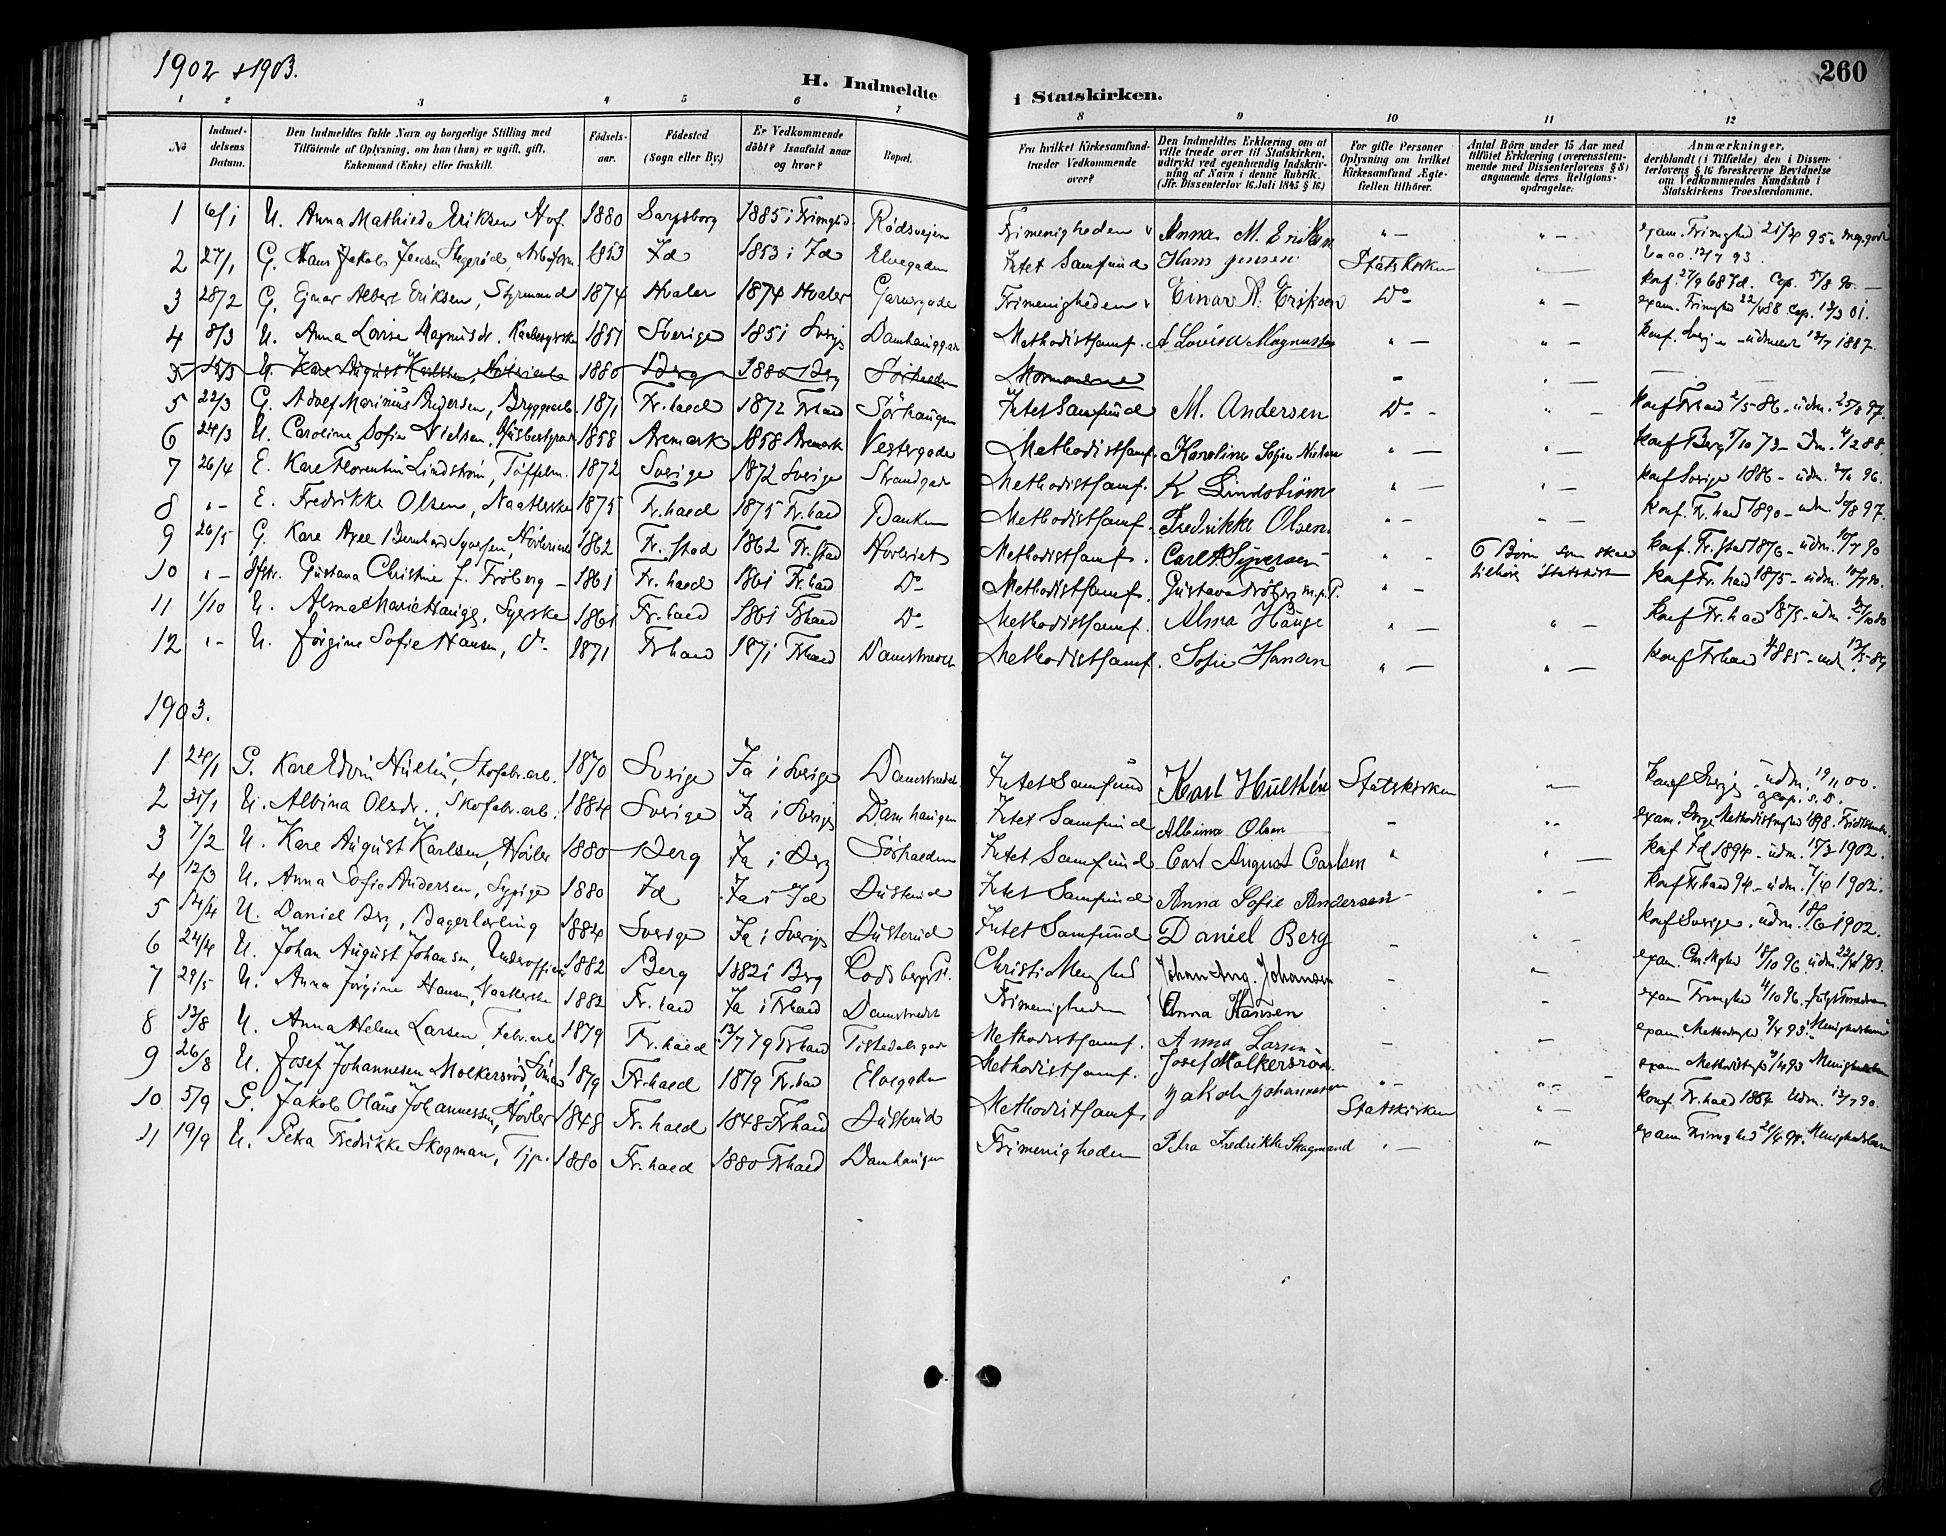 1902 & 1903.
H. Indmeldte i Statskirken.
260
1 2 3 4 5 6 7 8 9 10 11 12
No
Indmeldelsens Datum.
Den Indmeldtes fulde Navn og borgerlige Stilling med Tilföiende af Oplysning, om han (hun) er ugift, gift, Enkemand (Enke) eller fraskilt.
Födselsaar.
Födested (Sogn eller By.)
Er Vedkommende döbt? Isaafald naar og hvor?
Bopæl.
Fra hvilket Kirkesamfund træder Vedkommende over?
Den Indmeldtes Erklæring om at ville træde over til Statskirken, udtrykt ved egenhændig Indskrivning af Navn i denne Rubrik. (Jfr. Dissenterlov 16. Juli 1845 § 16)
For gifte Personer Oplysning om hvilket Kirkesamfund Ægtefællen tilhörer.
Antal Börn under 15 Aar med tilföiet Erklæring (overensstemmende med Dissenterlovens § 8) angaaende deres Religionsopdragelse.
Anmærkninger, deriblandt (i Tilfælde) den i Dissenterlovens § 16 foreskrevne Bevidnelse om Vedkommendes Kundskab i Statskirkens Troeslærdomme.
1 6/1 U. Anna Mathilde Eriksen 1880 Sarpsborg 1885 i Frimghd. Rødsveien Frimenigheden Anna M. Eriksen " — " — exam. Frimghed 21/4 95
2 27/1 G. Hans Jakob Jensen 1853 Id 1853 i Id Elvegaden Intet Samfund Hans Jensen Statskirken
3 28/2 G. Ejnar Albert Eriksen, Styrmand 1874 Hvaler 1874 Hvaler Garvergade Frimenigheden Einar A. Eriksen Do " — exam. Frimghed
4 8/3 U. Anna Lovise Magnusdr. 1851 Sverige 1851 Sverig Damhauggade Methodistsamf. A Lovisa Magnusson " — " — konf. Sverige - udmeldt 13/7 1887.
5 13/3 U. Karl August Karlsen, 1880 Berg 1880 Berg Sørhalden Mormonerne
5 22/3 G. Adolf Marinius Andersen, Bryggearb. 1871 Fr.hald 1872 Frhald Sørhaugen Intet Samfund M. Andersen Do - " — konf Frhald 2/5 86 - udm. 25/8 97.
6 24/3 U. Caroline Sofie Nielsen, 1858 Aremark 1858 Aremark Vestergade Methodistsamf. Karoline Sofie Nielsen " — " — konf Berg 5/10 73 - Udm. 4/2 88.
7 26/4 E. Karl Florentin Lindstrøm, Tøffelm. 1872 Sverige 1872 Sverige Strandgad Methodistsamf. K Lindstrøm " — " — konf Sverige 1886 - udm. 96.
8 " — E. Fredrikke Olsen, 1875 Fr.hald 1875 Fr.hald Banken Methodistsamf. Fredrikke Olsen " — " — konf. Fr.hald 1890 - udm. 10/8 97.
9 26/5 G. Karl Axel Bernhard Syversen, Høvleriarb 1862 Fr.stad 1862 Fr.stad Hovleriet Methodistsamf. Carl A Syversen " — 6 Børn som skal tilhøre Statskirk konf. Fr.stad 1876 - udm. 10/7 90
10 " — Gustava Christine f. Frøberg — 1861 Fr.hald 1861 Fr.hald Do Methodistsamf. Gustava Frøberg m.p.P. " — konf Fr.hald 1875 - udm. 10/7 90.
11 1/10 U. Alma Marie Hauge, Syerske 1861 Fr.hald 1861 Frhald Do Methodistsamf. Alma Hauge " — " — konf Fr.hald 1875 - udm.
12 " — U. Jørgine Sofie Hansen, Do 1871 Frhald 1871 Frhald Damstrædet Methodistsamf. Sofie Hansen " — " — konf Frhald 1885 - udm
1903.
1 24/1 G. Karl Edvin Hultin, Skofabr.arb. 1870 Sverige Ja i Sverige Damstrædet Intet Samfund Karl Hulthén Statskirken " — konf Sverige - udm. 19/11 00.
2 31/1 U. Albina Olsdr. Skofabr.arb. 1884 Sverige Ja i Sverig Damhaugen Intet Samfund Albina Olsen
3 7/2 U. Karl August Karlsen, Høvler 1880 Berg Ja i Berg Sørhalden Intet Samfund Carl August Carlsen " " — konf Id 1894 - udm. 15/3 1902.
4 12/3 U. Anna Sofie Andersen, Sypige 1880 Id Ja i Id Austerud Intet Samfund Anna Sofie Andersen konf Frhald 94 - udm. 7/4 1902.
5 14/4 U. Daniel Berg, Bagerlærling 1884 Sverige Ja i Sverig Austerud Intet Samfund Daniel Berg konf Sverige. udm. 18/6 1902.
6 24/4 U. Johan August Johansen, Underofficer 1882 Berg 1882 i Berg Christi Menghed Johan Aug. Johansen exam. Chr. Mghed 18/10 96. udm. 22/4 1903.
7 29/5 U. Anna Jørgine Hansen, 1882 Fr.hald Ja i Frhald Damstrædet Frimenigheden Anna Hansen exam Frimghed 4/10 96.
8 13/8 U. Anna Helene Larsen, Fabr.arb 1879 Fr.hald 13/7 79 Frhald Tistedalsgad Methodistsamf. Anna Larsen exam. Methodistghd 9/4 93. Menighedsbarn
9 26/8 U. Josef Johannesen Molkersrød, 1879 Fr.hald 1879 Fr.hald Elvegaden Methodistsamf. Josef Molkersrød. exam Methodistmgh 9/4 93 Menighedsbarn
10 5/9 G. Jakob Olaus Johannessen, Høvler 1848 Fr.hald 1848 Frhald Austerud Methodistsamf. Jakob Johannessen Statskirken " — konf Fr.hald 1864 Udm. 13/7 90.
11 19/9 U. Petra Fredrikke Skogman, Tjp. 1880 Fr.hald 1880 Frhald Damhaugen Frimenigheden Petra Fredrikke Skogmand " — " exam Frimghed Menighedsbarn